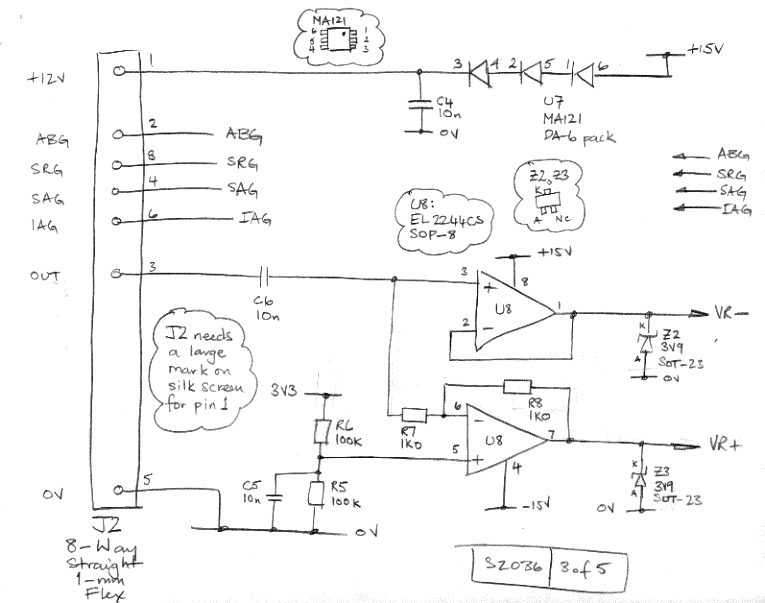 MA121
6 1
5 2
4 3
1
+12V
3 4 2 5 1 6
+15V
C4
10n
0V
U7
MA121
DA-6 pack
2
ABG
ABG
8
SRG
SRG
4
SAG
SAG
6
IAG
IAG
ABG
SRG
SAG
IAG
Z2,Z3
K
A NC
U8:
EL2244CS
SOP-8
+15V
OUT
3
C6
10n
3
+
8
U8
1
2
-
VR-
K
Z2
3V9
A
SOT-23
0V
J2 needs
a large
mark on
silk screen
for pin 1
3V3
R6
100K
R7
1K0
R8
1K0
6
-
U8
7
5
+
4
-15V
VR+
K
Z3
3V9
A
SOT-23
0V
C5
10n
R5
100K
0V
0V
5
J2
8-Way
Straight
1-mm
Flex
S2036 3 of 5